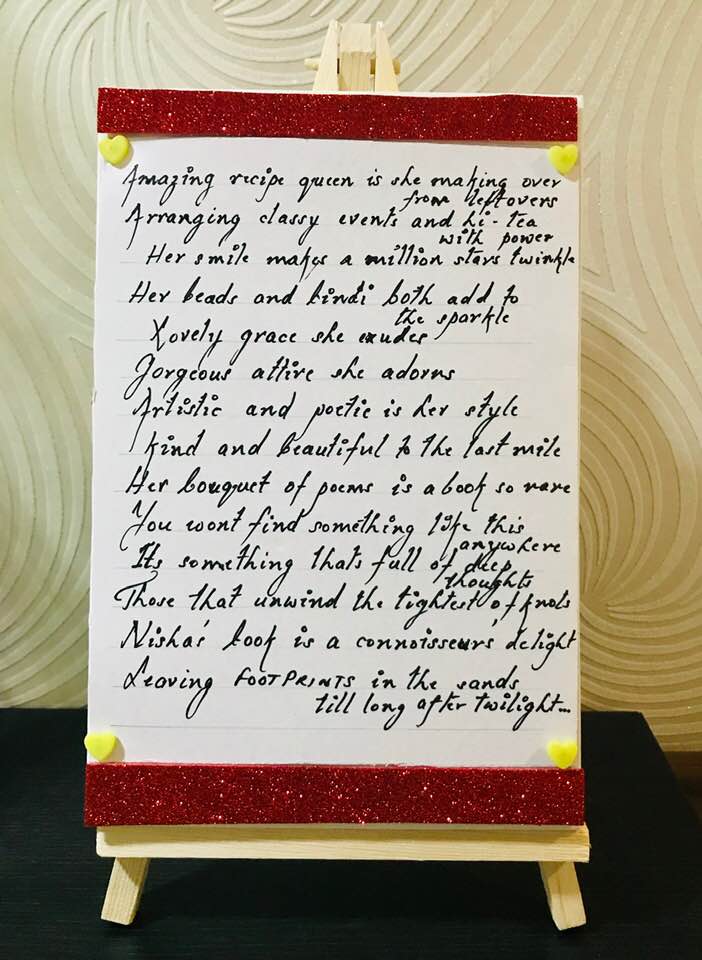 Amazing recipe queen is she making over
from leftovers
Arranging classy events and hi-tea
with power
Her smile makes a million stars twinkle
Her beads and bindi both add to
the sparkle
Lovely grace she exudes
Gorgeous attire she adorns
Artistic and poetic is her style
Kind and beautiful to the last mile
Her bouquet of poems is a book so rare
You wont find something like this
anywhere
Its something thats full of deep
thoughts
Those that unwind the tightest of knots
Nishas' book is a connoisseurs' delight
Leaving FOOTPRINTS in the sands
till long after twilight...